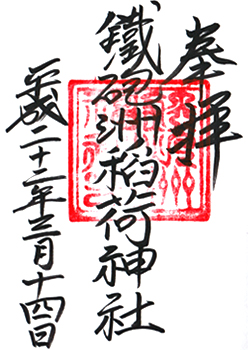 奉拝
鐵砲洲稲荷神社
平成二十二年三月十四日